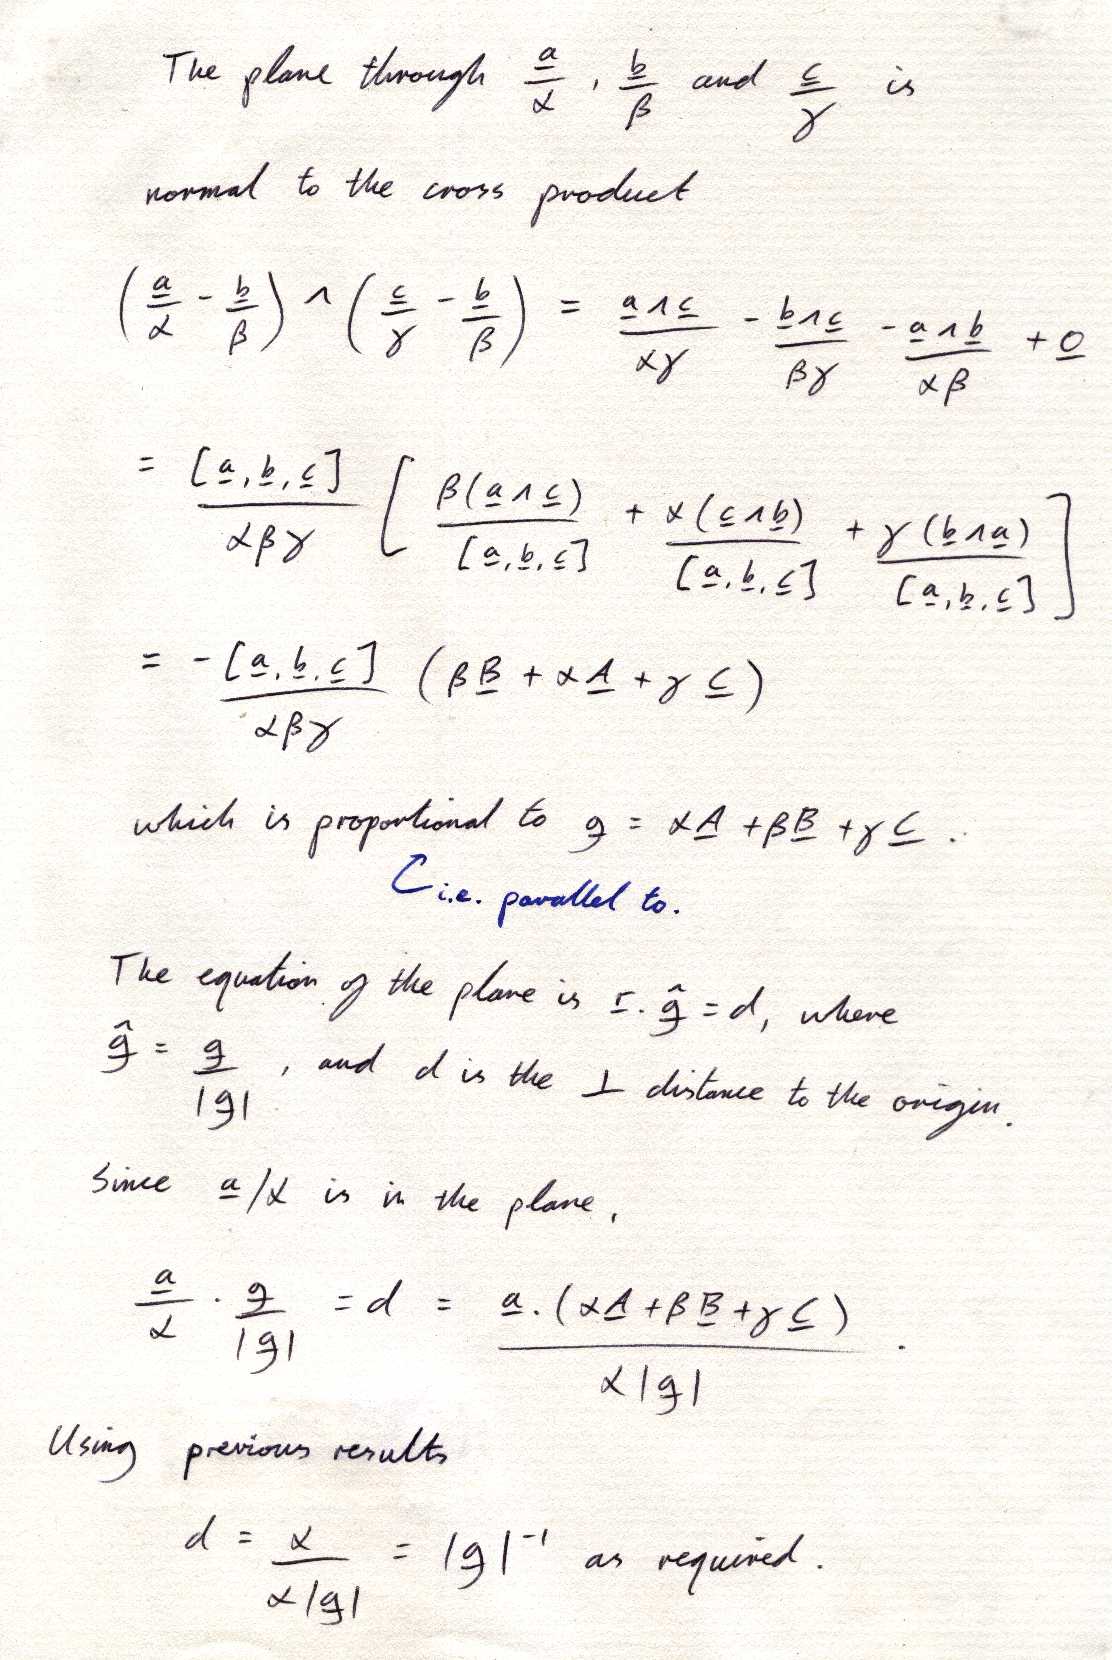 The plane through a/α , b/β and c/γ is
normal to the cross product
(a/α - b/β) ∧ (c/γ - b/β) = a∧c/αγ - b∧c/βγ - a∧b/αβ + 0
= [a,b,c]/αβγ [ β(a∧c)/[a,b,c] + α(c∧b)/[a,b,c] + γ(b∧a)/[a,b,c] ]
= -[a,b,c]/αβγ (βB + αA + γC)
which is proportional to g = αA + βB + γC .
i.e. parallel to.
The equation of the plane is r.ĝ = d, where
ĝ = g/|g| , and d is the ⊥ distance to the origin.
Since a/α is in the plane,
a/α . g/|g| = d = a.(αA + βB + γC)/α|g| .
Using previous results
d = α/α|g| = |g|⁻¹ as required.